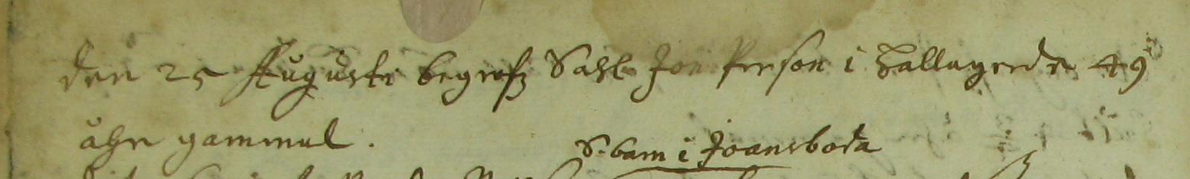 den 25 Augusti begrofz Sahl. Jon Person i Hallagerde 49
åhr gammul.
S. barn i Joansboda